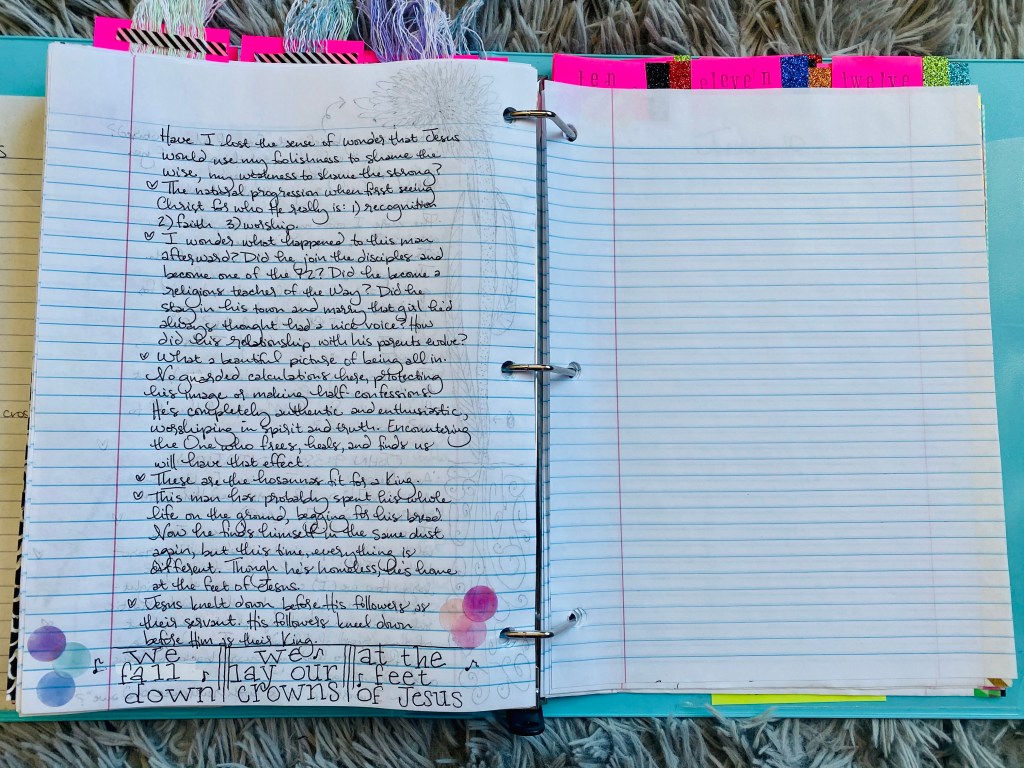 ten eleven twelve
Have I lost the sense of wonder that Jesus
would use my folishness to shame the
wise, my weakness to shame the strong?
♡ The natural progression when first seeing
Christ for who He really is: 1) recognition
2) faith 3) worship.
♡ I wonder what happened to this man
afterward? Did he join the disciples and
become one of the 72? Did he become a
religious teacher of the Way? Did he
stay in his town and marry that girl he'd
always thought had a nice voice? How
did his relationship with his parents evolve?
♡ What a beautiful picture of being all in.
No guarded calculations here, protecting
his image or making half-confessions.
He's completely authentic and enthusiastic,
worshiping in spirit and truth. Encountering
the One who frees, heals, and finds us
will have that effect.
♡ These are the hosannas fit for a King.
♡ This man has probably spent his whole
life on the ground, begging for his bread.
Now he finds himself in the same dust
again, but this time, everything is
different. Though he's homeless, he's home
at the feet of Jesus.
♡ Jesus knelt down before His followers as
their servant. His followers kneel down
before Him as their King.
we we at the
fall lay our feet
down crowns of Jesus
cros